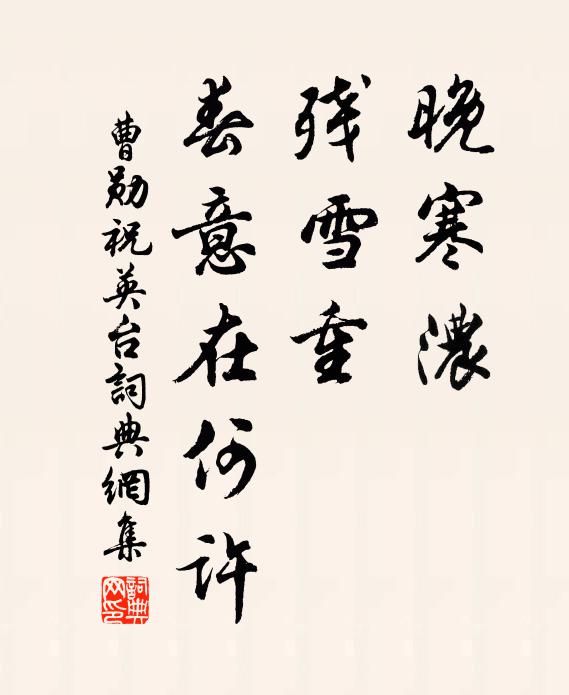 晚寒濃
殘雪重
春意在何許
曹勋祝英台詞典網集
詞典網印